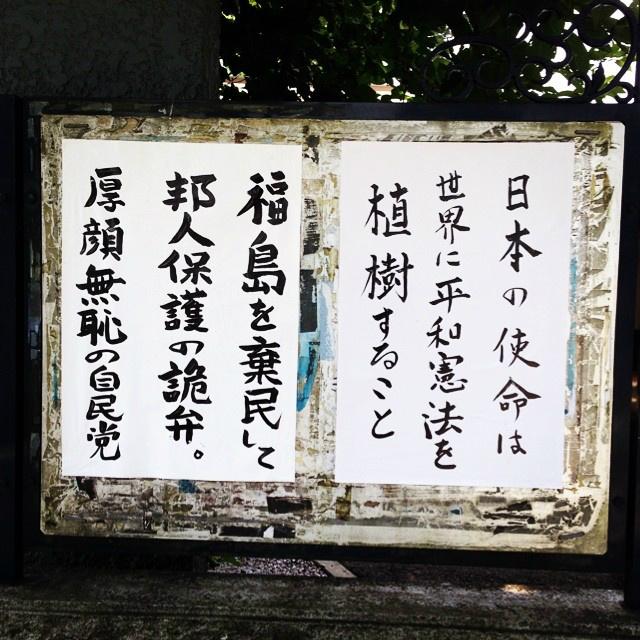 日本の使命は
世界に平和憲法を
植樹すること
福島を棄民して
邦人保護の詭弁。
厚顔無恥の自民党